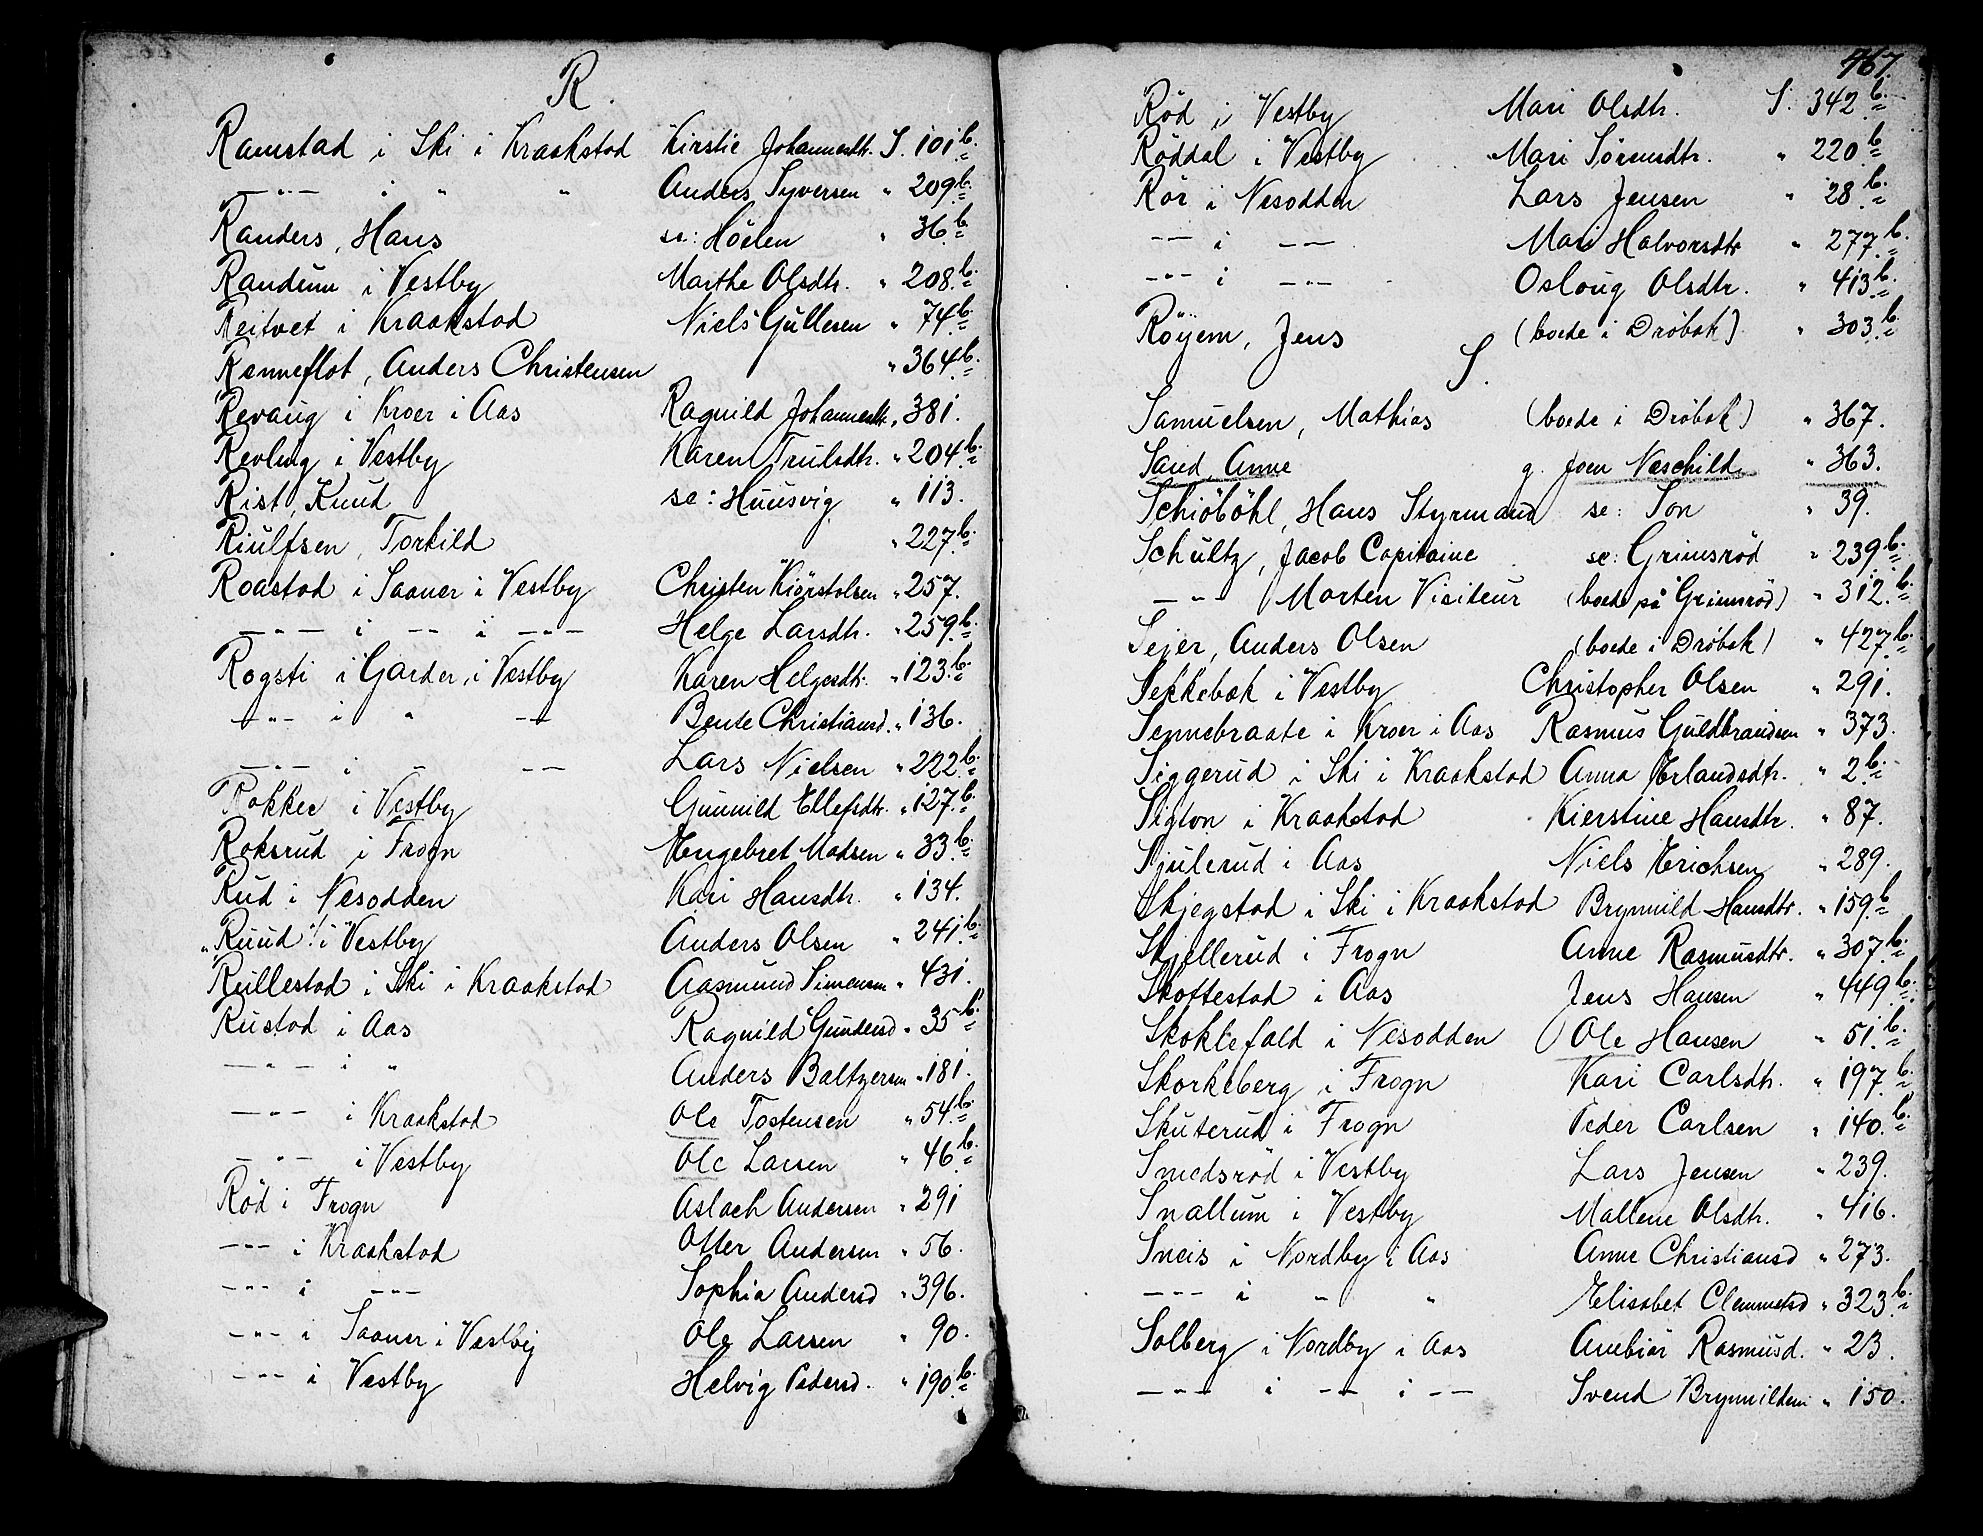 R.
Ramstad i Ski i Kraakstad Kirstie Johannesdtr. S. 101b.
—"— i " " Anders Syversen " 209b.
Randers, Hans se: Hölen " 36b
Randum i Vestby Marthe Olsdtr. " 208b.
Reitvet i Kraakstad Niels Gullesen " 74b.
Renneflot, Anders Christensen " 364b.
Revaug i Kroer i Aas Ragnild Johannesdtr. " 381.
Revling i Vestby Karen Trulsdtr. " 204b.
Rist, Knud se: Huusvig " 113.
Riulfsen, Torkild " 227b.
Roastad i Saaner i Vestby Christen Kiörstolsen " 257.
—"— i -- i —"— Helge Larsdtr. " 259b.
Rogsti i Garder i Vestby Karen Helgesdtr. " 123b.
—"— i " -- Bente Christiansd. " 136.
—"— i " -- Lars Nielsen " 222b.
Rokker i Vestby Gunnild Ellefsdtr. " 127b.
Roksrud i Frogn Engebret Madsen " 33b.
Rud i Nesodden Kari Hansdtr. " 134.
"Ruud" i Vestby Anders Olsen " 241b.
Rullestad i Ski i Kraakstad Aasmund Simensen " 431.
Rustad i Aas Ragnild Gundersd " 35b.
—"— i " Anders Baltzersen " 181.
—"— i Kraakstad Ole Tostensen " 54b.
—"— i Vestby Ole Larsen " 46b.
Röd i Frogn Aslach Andersen " 291
—"— i Kraakstad Otter Andersen " 56.
—"— i —"— Sophia Andersd " 396.
—"— i Saaner i Vestby Ole Larsen " 90.
—"— i Vestby Helvig Pedersd. " 190b.
467.
Röd i Vestby Mari Olsdtr. S. 342b.
Röddal i Vestby Mari Sörensdtr. " 220b
Rör i Nesodden Lars Jensen " 28b.
—"— i -- Mari Halvorsdtr " 277b.
—"— i —"— Osloug Olsdtr. " 413b.
Röyem, Jens (boede i Dröbak) " 303b.
S.
Samuelsen, Mathias (boede i Dröbak) " 367.
Sand, Anne g. Joen Næschild " 363.
Schiöböhl, Hans Styrmand se: Son " 39.
Schultz, Jacob Capitaine se: Grimsröd " 239b.
—"— Morten Visiteur (boede på Grimsröd) " 312b.
Sejer, Anders Olsen (boede i Dröbak) " 427b.
Sekkebæk i Vestby Christopher Olsen " 291.
Sennebraate i Kroer i Aas Rasmus Guldbrandsen " 373.
Siggerud i Ski i Kraakstad Anna Erlandsdtr. " 2b.
Sigton i Kraakstad Kierstine Hansdtr. " 87.
Sjulerud i Aas Niels Erichsen " 289.
Skjegstad i Ski i Kraakstad Brynnild Hansdtr. " 159b
Skjellerud i Frogn Anne Rasmusdtr. " 307b.
Skoftestad i Aas Jens Hansen " 449b.
Skoklefald i Nesodden Ole Hansen " 51b.
Skorkeberg i Frogn Kari Carlsdtr. " 197b.
Skuterud i Frogn Peder Carlsen " 140b.
Smedsröd i Vestby Lars Jensen " 239.
Snallum i Vestby Mallene Olsdtr. " 416.
Sneis i Nordby i Aas Anne Christiansd " 273.
—"— i " " Elisabet Clemmetsd " 323b.
Solberg i Nordby i Aas Anebiör Rasmusd. " 23.
—"— i -- i -- Svend Brynnildsen " 150.